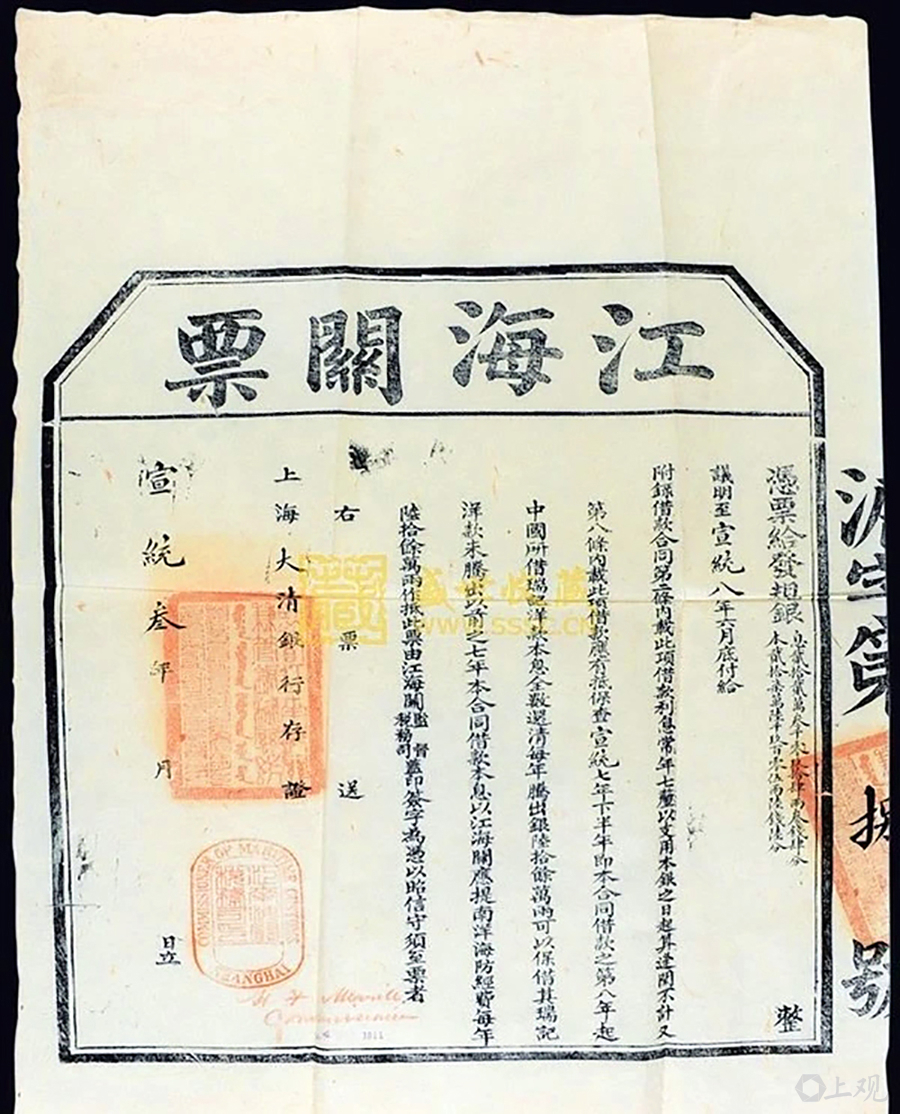 江海關票
號
憑票給發規銀
整
議明至宣統八年六月底付給
附錄借款合同第二條內載此項借款利息常年七釐以支用本銀之日起算逢閏不計又
第八條內載此借款應有抵保查宣統七年下半年即本合同借款之第八年起
中國所借瑞記洋款本息全數還清每年騰出銀陸拾餘萬兩可以保借其瑞記
洋款未騰出以前之七年本合同借款本息以江海關應提南洋海防經費每年
陸拾餘萬兩作抵此票由江海關監督稅務司蓋印簽字為憑以昭信守須至票者
右票送
上海大清銀行存證
宣統叁年 月 日立
COMMISSIONER OF MARITIME CUSTOMS
SHANGHAI
1911
盛世收藏
www.sssc.cn
上观